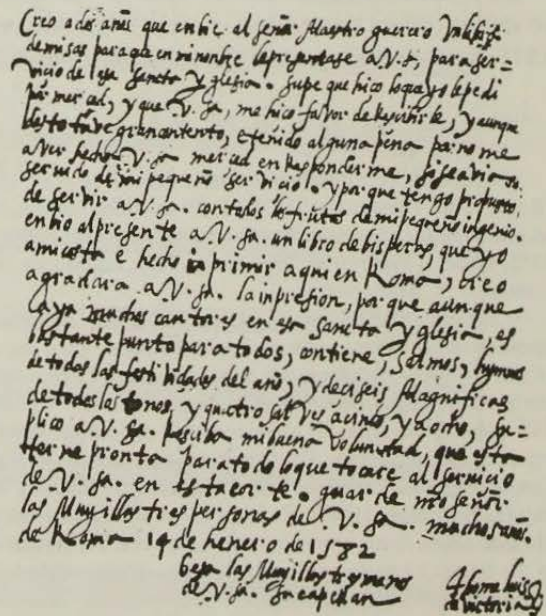 Creo a dos años que enbie al señor Maestro guerero Un libro
de misas para que en mi nonbre le presentase a V. S., para ser=
vicio de esa Sancta yglesia. Supe que hico lo que yo le pedi
por merced, y que V. Sa. me hico favor de Recivirle, y aunque
desto tuve gran contento, e tenido alguna pena por no me
aver hecho V. Sa. merced en Responderme, si se avia
servido de mi pequeño servicio. y porque tengo proposito
de servir a V. Sa. con todos los frutos de mi pequeño ingenio.
enbio al presente a V. Sa. un libro de bisperas, que yo
a mi costa e hecho inprimir aqui en Roma, creo
agradara a V. Sa. la inpresion, porque aunque
aya muchos cantores en esa Sancta yglesia, es
bastante punto para todos, contiene, Salmos, hymnos
de todas las festividades del año, y deciseis Magnificas
de todos los tonos, y quatro salves a cinco, y a ocho, Su=
plico a V. Sa. Resciba mi buena Voluntad, que esta
terne pronta para todo lo que tocare al servicio
de V. Sa. en esta corte. guarde nro señor
las Muy illustres personas de V. Sa. muchos años.
de Roma 14 de henero de 1582
besa las Muy illustres manos
de V. Sa. su capellan
Thome luis
de victoria